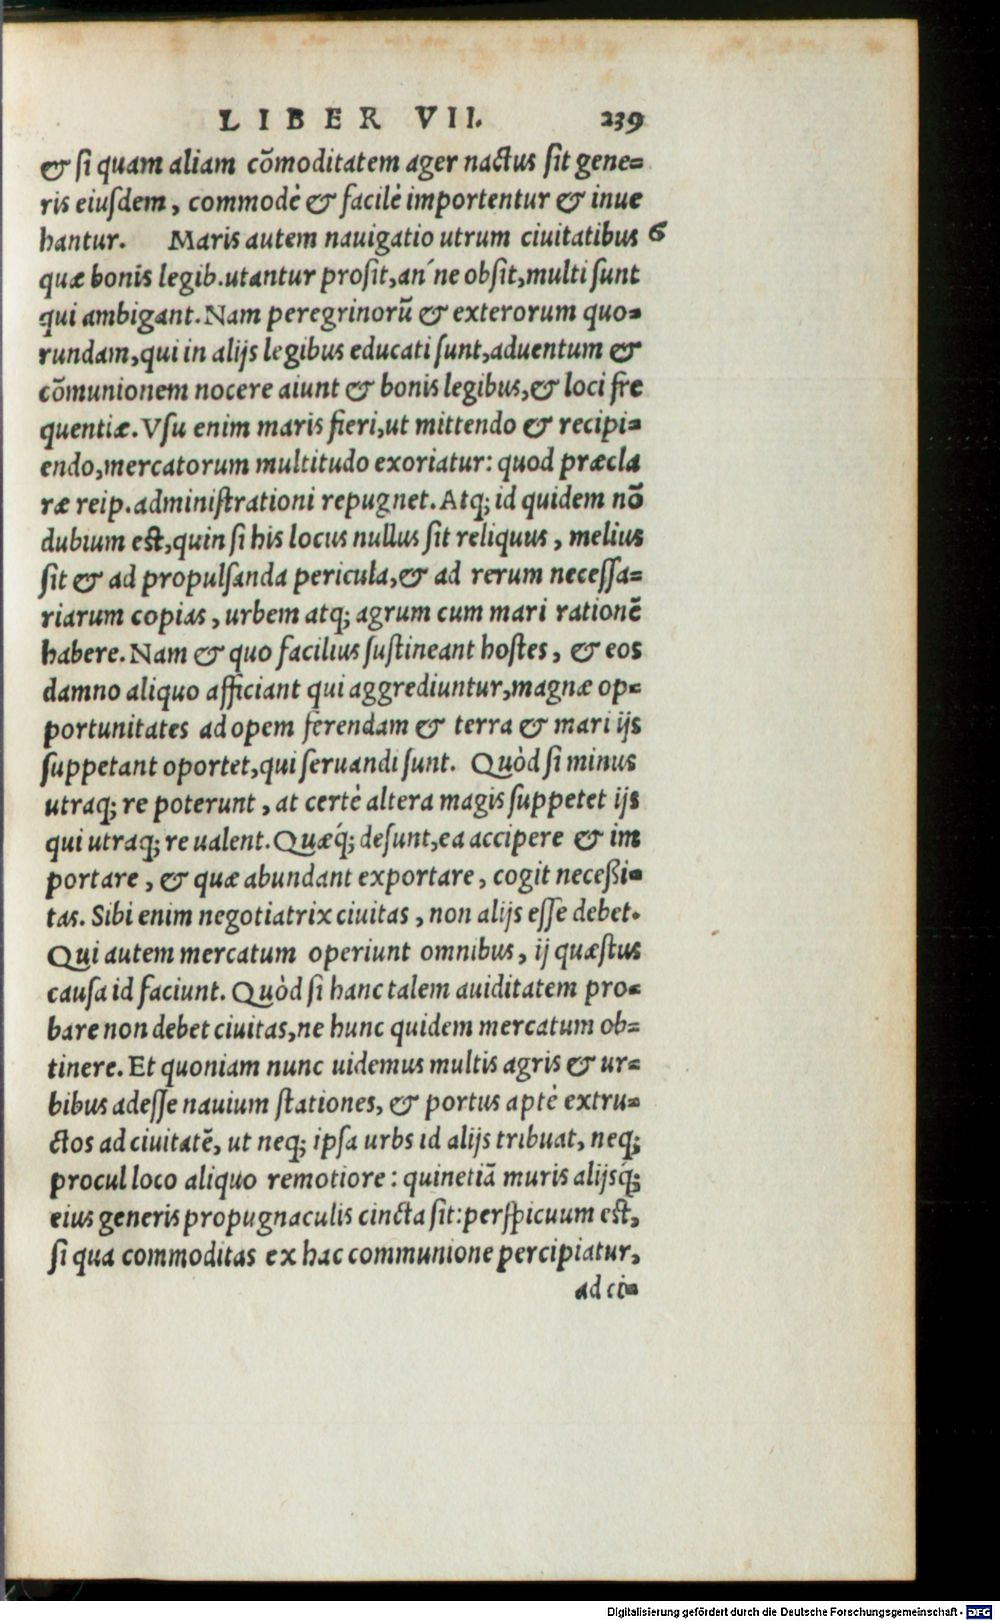 LIBER VII. 239
& si quam aliam cõmoditatem ager nactus sit gene=
ris eiusdem, commodè & facilè importentur & inue
hantur. Maris autem nauigatio utrum ciuitatibus 6
quæ bonis legib. utantur prosit, an´ne obsit, multi sunt
qui ambigant. Nam peregrinorũ & exterorum quo=
rundam, qui in alijs legibus educati sunt, aduentum &
cõmunionem nocere aiunt & bonis legibus, & loci fre
quentiæ. Vsu enim maris fieri, ut mittendo & recipi=
endo, mercatorum multitudo exoriatur: quod præcla
ræ reip. administrationi repugnet. Atq; id quidem nõ
dubium est, quin si his locus nullus sit reliquus, melius
sit & ad propulsanda pericula, & ad rerum necessa=
riarum copias, urbem atq; agrum cum mari rationẽ
habere. Nam & quo facilius sustineant hostes, & eos
damno aliquo afficiant qui aggrediuntur, magnæ op=
portunitates ad opem ferendam & terra & mari ijs
suppetant oportet, qui seruandi sunt. Quòd si minus
utraq; re poterunt, at certè altera magis suppetet ijs
qui utraq; re ualent. Quæq́; desunt, ea accipere & im
portare, & quæ abundant exportare, cogit neceßi=
tas. Sibi enim negotiatrix ciuitas, non alijs esse debet.
Qui autem mercatum operiunt omnibus, ij quæstus
causa id faciunt. Quòd si hanc talem auiditatem pro=
bare non debet ciuitas, ne hunc quidem mercatum ob=
tinere. Et quoniam nunc uidemus multis agris & ur=
bibus adesse nauium stationes, & portus aptè extru=
ctos ad ciuitatẽ, ut neq; ipsa urbs id alijs tribuat, neq;
procul loco aliquo remotiore: quinetiã muris alijsq́;
eius generis propugnaculis cincta sit: perspicuum est,
si qua commoditas ex hac communione percipiatur,
ad ci=
Digitalisierung gefördert durch die Deutsche Forschungsgemeinschaft - DFG